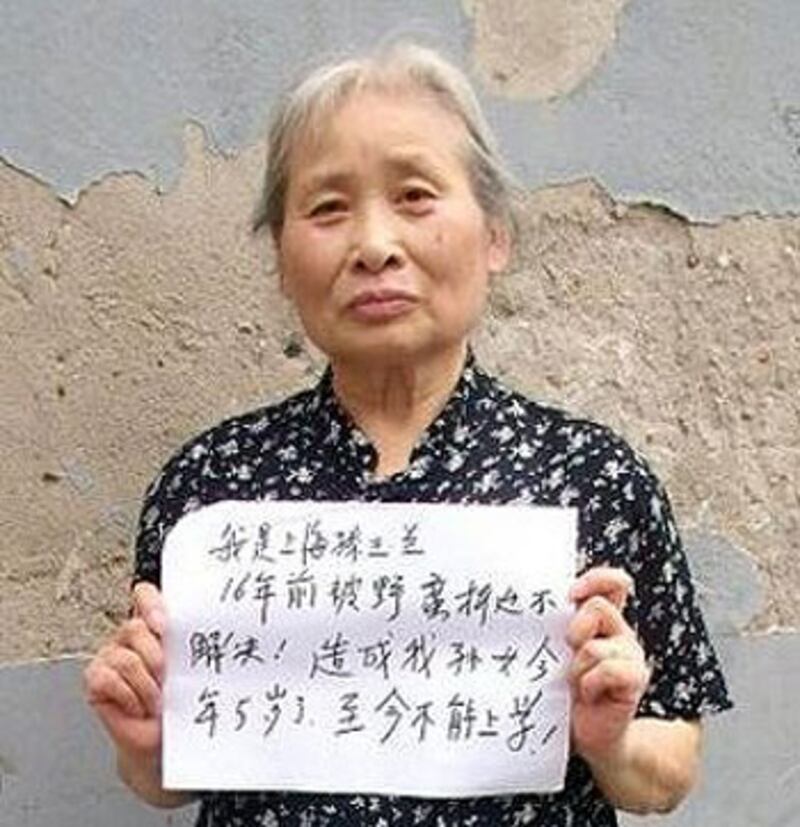 我是上海
16年前被野蛮拆迁不
解决！造成我孙女今
年5岁了、至今不能上学！